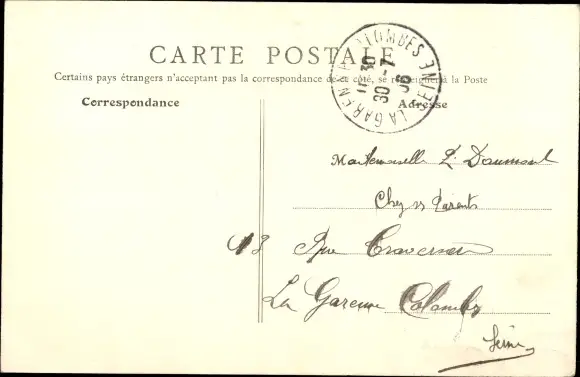 CARTE POSTALE
Certains pays étrangers n'acceptant pas la correspondance de ce côté, se renseigner à la Poste
Correspondance
Adresse
LA GARENNE COLOMBES SEINE
30 -7
Mademoiselle L. Daumont
Chez ses Parents
43 Rue Traversière
La Garenne Colombes
Seine